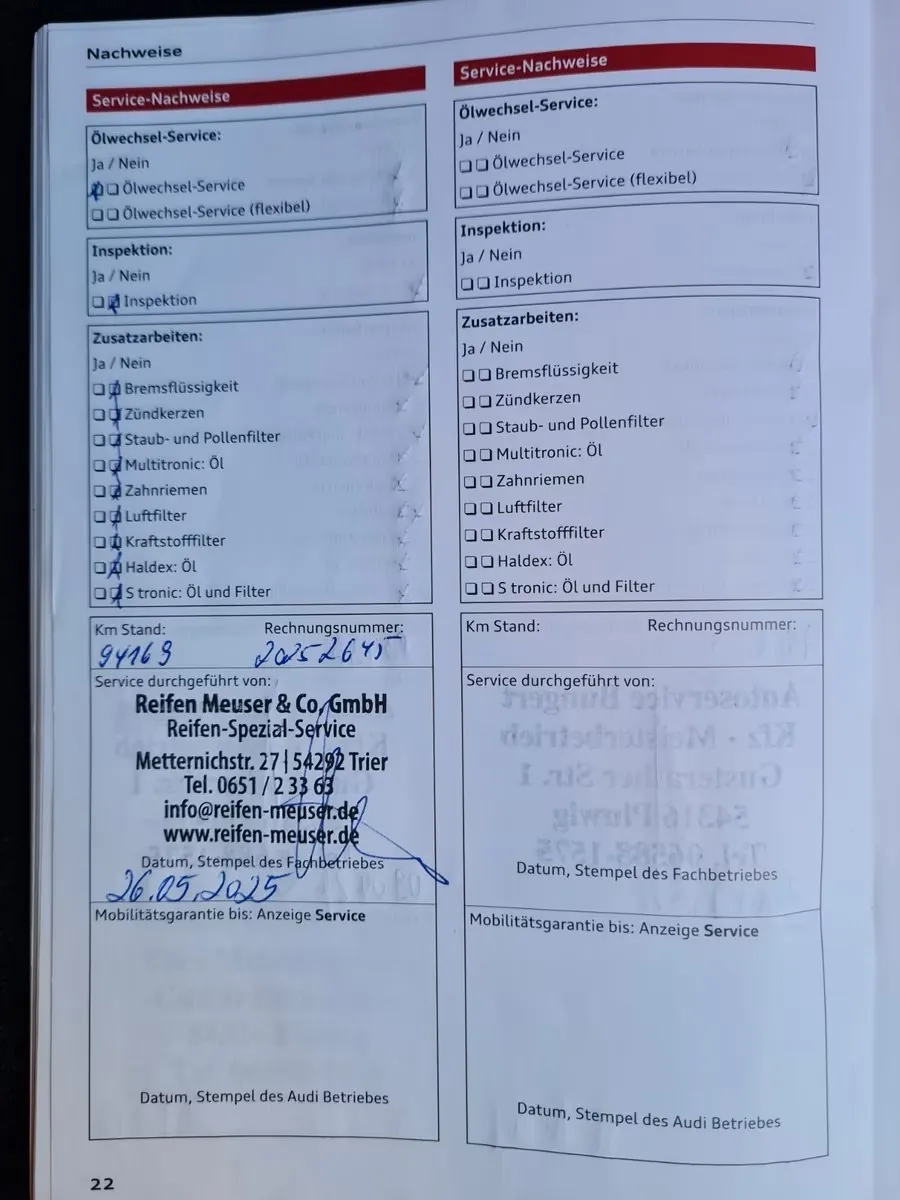 Nachweise
Service-Nachweise
Ölwechsel-Service:
Ja / Nein
Ölwechsel-Service
Ölwechsel-Service (flexibel)
Inspektion:
Ja / Nein
Inspektion
Zusatzarbeiten:
Ja / Nein
Bremsflüssigkeit
Zündkerzen
Staub- und Pollenfilter
Multitronic: Öl
Zahnriemen
Luftfilter
Kraftstofffilter
Haldex: Öl
S tronic: Öl und Filter
Km Stand: Rechnungsnummer:
94169 20252645
Service durchgeführt von:
Reifen Meuser & Co. GmbH
Reifen-Spezial-Service
Metternichstr. 27 | 54292 Trier
Tel. 0651 / 2 33 63
info@reifen-meuser.de
www.reifen-meuser.de
Datum, Stempel des Fachbetriebes
26.05.2025
Mobilitätsgarantie bis: Anzeige Service
Datum, Stempel des Audi Betriebes
Service-Nachweise
Ölwechsel-Service:
Ja / Nein
Ölwechsel-Service
Ölwechsel-Service (flexibel)
Inspektion:
Ja / Nein
Inspektion
Zusatzarbeiten:
Ja / Nein
Bremsflüssigkeit
Zündkerzen
Staub- und Pollenfilter
Multitronic: Öl
Zahnriemen
Luftfilter
Kraftstofffilter
Haldex: Öl
S tronic: Öl und Filter
Km Stand: Rechnungsnummer:
Service durchgeführt von:
Datum, Stempel des Fachbetriebes
Mobilitätsgarantie bis: Anzeige Service
Datum, Stempel des Audi Betriebes
22